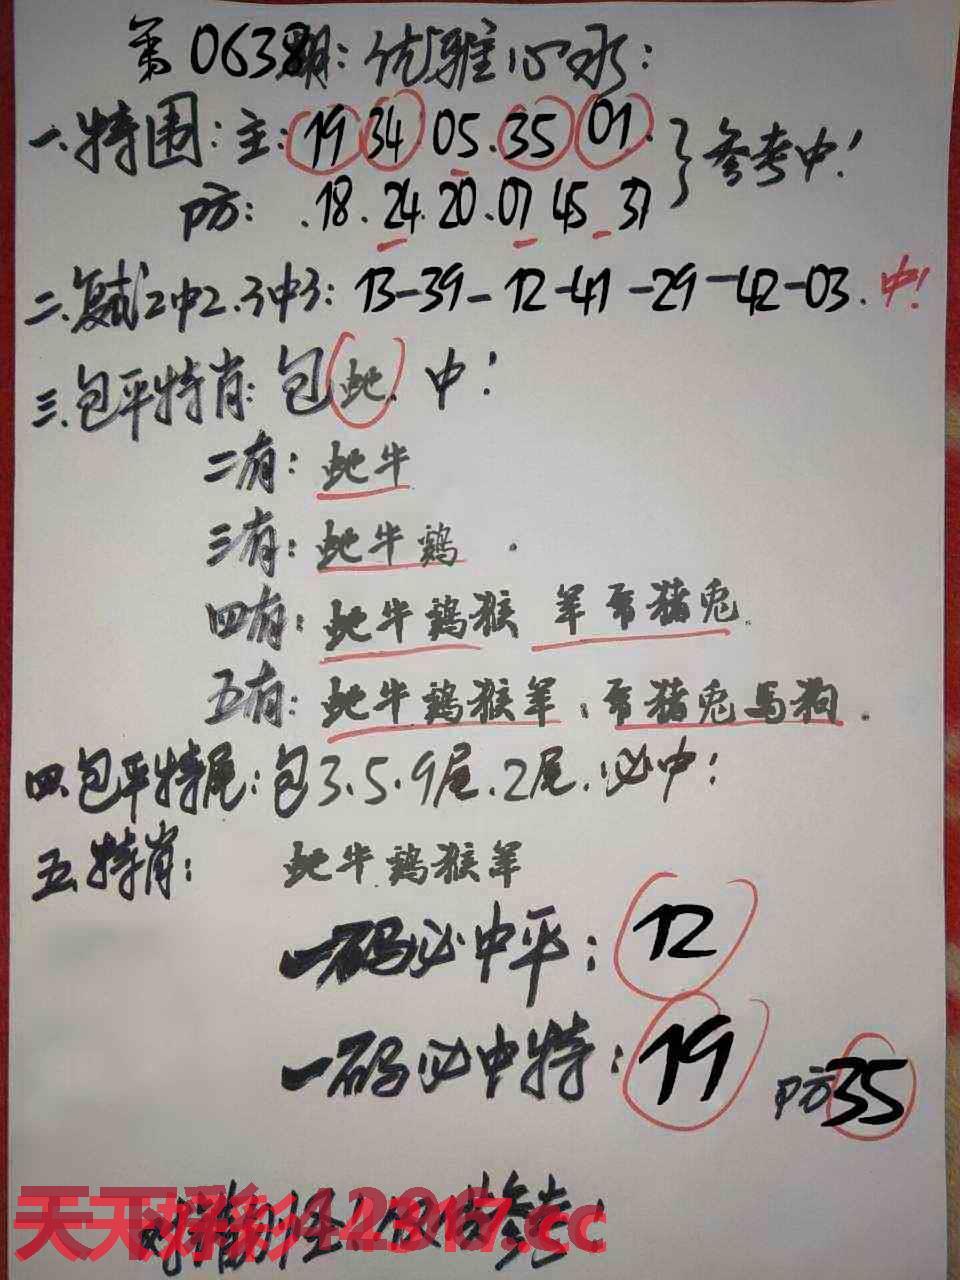 第0638期:优雅心水:
一.特围:主:19 34.05.35 01.
}参考中!
防:.18.24.20.07 45.37
二.复试2中2.3中3:13-39-12-41-29-42-03.中!
三.包平特肖:包蛇.中!
二有:蛇牛
三有:蛇牛鸡.
四有:蛇牛鸡猴 羊 猪兔.
五有:蛇牛鸡猴羊: 猪兔马狗.
四.包平特尾:包3.5.9尾.2尾.必中!
五.特肖: 蛇牛鸡猴羊
一码必中平:12
一码必中特:19 防35
天下彩 .cc
参考!